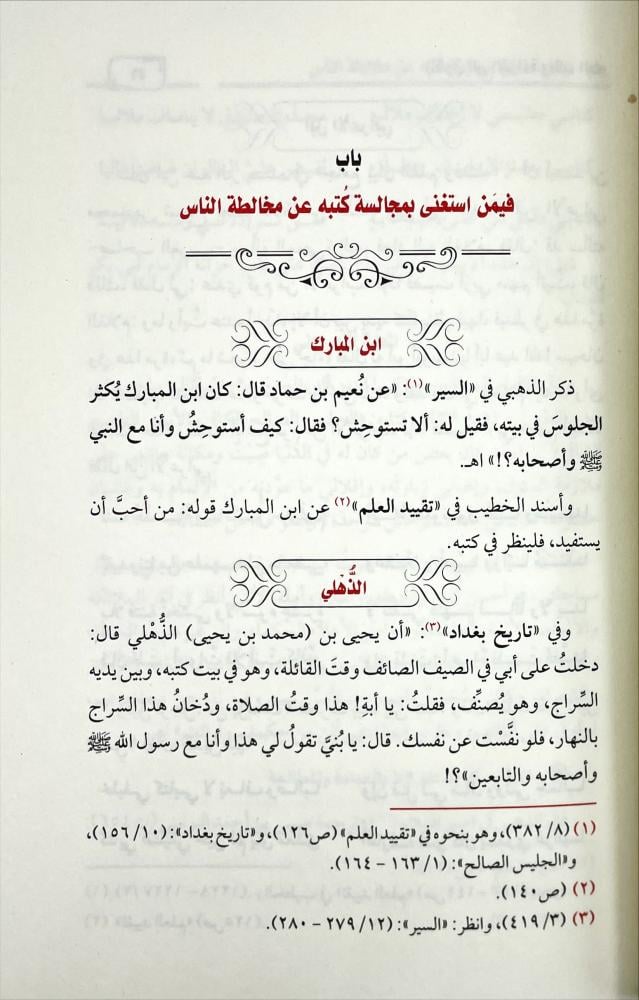 باب
فيمَن استغنى بمجالسة كُتبه عن مخالطة الناس
ابن المبارك
ذكر الذهبي في «السير»(١): «عن نُعيم بن حماد قال: كان ابن المبارك يُكثر
الجلوسَ في بيته، فقيل له: ألا تستوحِش؟ فقال: كيف أستوحِشُ وأنا مع النبي
ﷺ وأصحابه؟!» اهـ.
وأسند الخطيب في «تقييد العلم»(٢) عن ابن المبارك قوله: من أحبَّ أن
يستفيد، فلينظر في كتبه.
الذُّهْلي
وفي «تاريخ بغداد»(٣): «أن يحيى بن (محمد بن يحيى) الذُّهْلي قال:
دخلتُ على أبي في الصيف الصائف وقتَ القائلة، وهو في بيت كتبه، وبين يديه
السِّراج، وهو يُصنِّف، فقلتُ: يا أبةِ! هذا وقتُ الصلاة، ودُخانُ هذا السِّراج
بالنهار، فلو نفَّسْت عن نفسك. قال: يا بُنيَّ تقولُ لي هذا وأنا مع رسول الله ﷺ
وأصحابه والتابعين»؟!
(١) (٨/ ٣٨٢)، وهو بنحوه في «تقييد العلم» (ص١٢٦)، و«تاريخ بغداد»: (١٠/ ١٥٦)،
و«الجليس الصالح»: (١/ ١٦٣ - ١٦٤).
(٢) (ص١٤٠).
(٣) (٣/ ٤١٩)، وانظر: «السير»: (١٢/ ٢٧٩ - ٢٨٠).